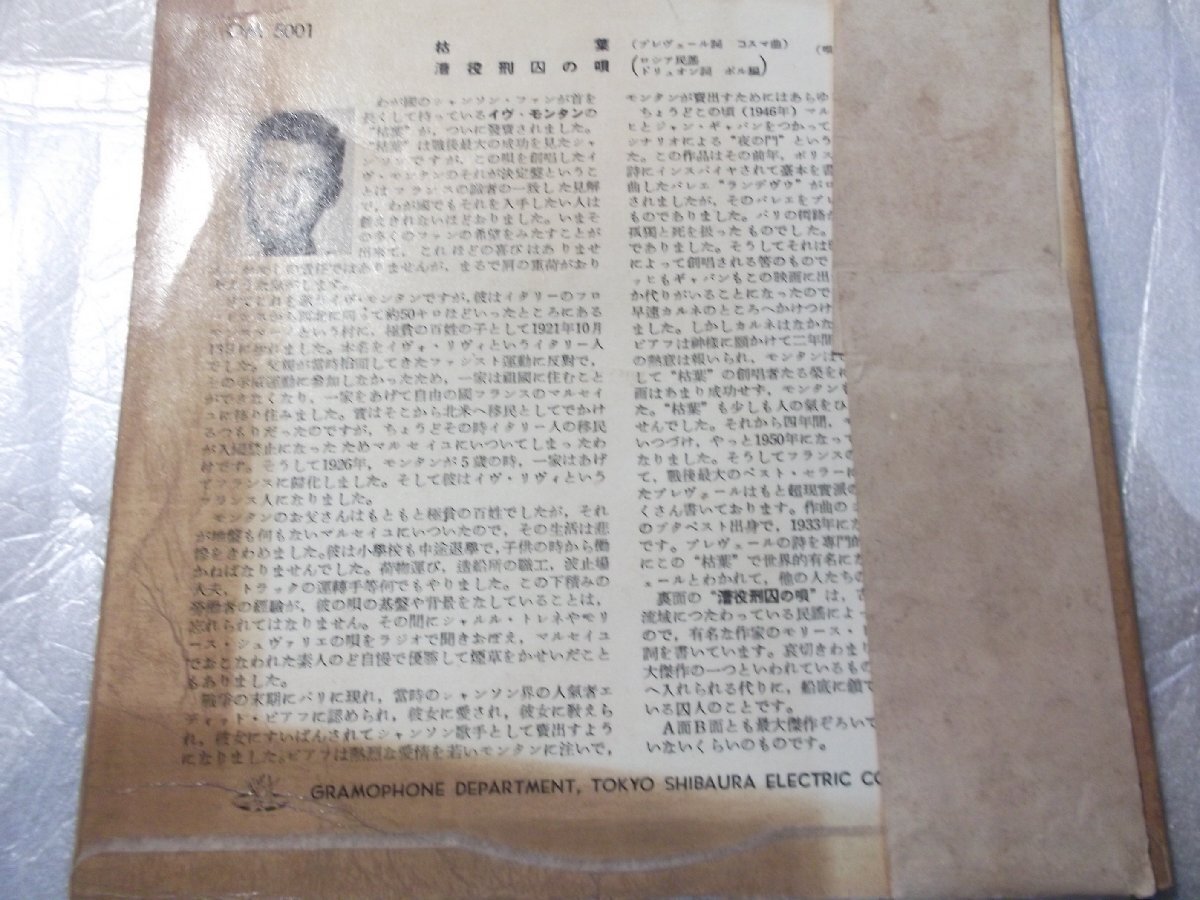 5001
枯葉 (プレヴェール詞 コスマ曲)
漕役刑囚の唄 (ロシア民謡 ドリュオン詞 ポル編)
わが國のシャンソン・ファンが首を
長くして待っているイヴ・モンタンの
"枯葉"が,ついに發賣されました。
"枯葉"は戰後最大の成功を見たシャ
ンソンですが,この唄を創唱したイ
ヴ・モンタンのそれが決定盤というこ
とはフランスの識者の一致した見解
で,わが國でもそれを入手したい人は
數えきれないほどおりました。いまそ
の多くのファンの希望をみたすことが
出來て,これほどの喜びはありませ
の責任ではありませんが,まるで肩の重荷がおり
がします。
イヴ・モンタンですが,彼はイタリーのフロ
から西北に向って約50キロほどいったところにある
という村に,極貧の百姓の子として1921年10月
13日に生れました。本名をイヴォ・リヴィというイタリー人
でした。父親が當時抬頭してきたファシスト運動に反對で,
その示威運動に參加しなかったため,一家は祖國に住むこと
ができなくなり,一家をあげて自由の國フランスのマルセイ
ユに移り住みました。實はそこから北米へ移民としてでかけ
るつもりだったのですが,ちょうどその時イタリー人の移民
が入國禁止になったためマルセイユにいついてしまったわ
けです。そうして1926年,モンタンが5歳の時,一家はあげ
てフランスに歸化しました。そして彼はイヴ・リヴィという
フランス人になりました。
モンタンのお父さんはもともと極貧の百姓でしたが,それ
が地盤も何もないマルセイユにいついたので,その生活は悲
慘をきわめました。彼は小學校も中途退學で,子供の時から働
かねばなりませんでした。荷物運び,造船所の職工,波止場
人夫,トラックの運轉手等何でもやりました。この下積みの
勞働者の經驗が,彼の唄の基盤や背景をなしていることは,
忘れられてはなりません。その間にシャルル・トレネやモリ
ース・シュヴァリエの唄をラジオで聞きおぼえ,マルセイユ
でおこなわれた素人のど自慢で優勝して煙草をかせいだこと
もありました。
戰爭の末期にパリに現れ,當時のシャンソン界の人氣者エ
ディット・ピアフに認められ,彼女に愛され,彼女に敎えら
れ,彼女にすいばんされてシャンソン歌手として賣出すよう
になりました。ピアフは熱烈な愛情を若いモンタンに注いで,
モンタンが賣出すためにはあらゆ
ちょうどこの頃(1946年)マル
ヒとジャン・ギャバンをつかって
シナリオによる"夜の門"という
た。この作品はその前年,ボリス
詩にインスパイヤされて臺本を書
曲したバレエ"ランデヴウ"がロ
されましたが,そのバレエをプレ
ものでありました。パリの街路が
孤獨と死を扱ったものでした。
でありました。そうしてそれは
によって創唱される筈のもので
ッヒもギャバンもこの映畫に出
か代りがいることになったので
早速カルネのところへかけつけ
ました。しかしカルネはなかな
ピアフは神樣に願かけて二年間
の熱意は報いられ,モンタンは
して"枯葉"の創唱者たる榮を
畫はあまり成功せず,モンタンも
た。"枯葉"も少しも人の氣をひ
せんでした。それから四年間,
いつづけ,やっと1950年になって
なりました。そうしてフランスの
て,戰後最大のベスト・セラーに
たプレヴェールはもと超現實派の
くさん書いております。作曲のコ
のブタペスト出身で,1933年に
です。プレヴェールの詩を專門的
にこの"枯葉"で世界的有名にな
ェールとわかれて,他の人たちの
裏面の"漕役刑囚の唄"は,
流域につたわっている民謡によっ
ので,有名な作家のモリース・
詞を書いています。哀切きわまり
大傑作の一つといわれているもの
へ入れられる代りに,船底に鎖で
いる囚人のことです。
A面B面とも最大傑作ぞろいで
いないくらいのものです。
GRAMOPHONE DEPARTMENT, TOKYO SHIBAURA ELECTRIC CO